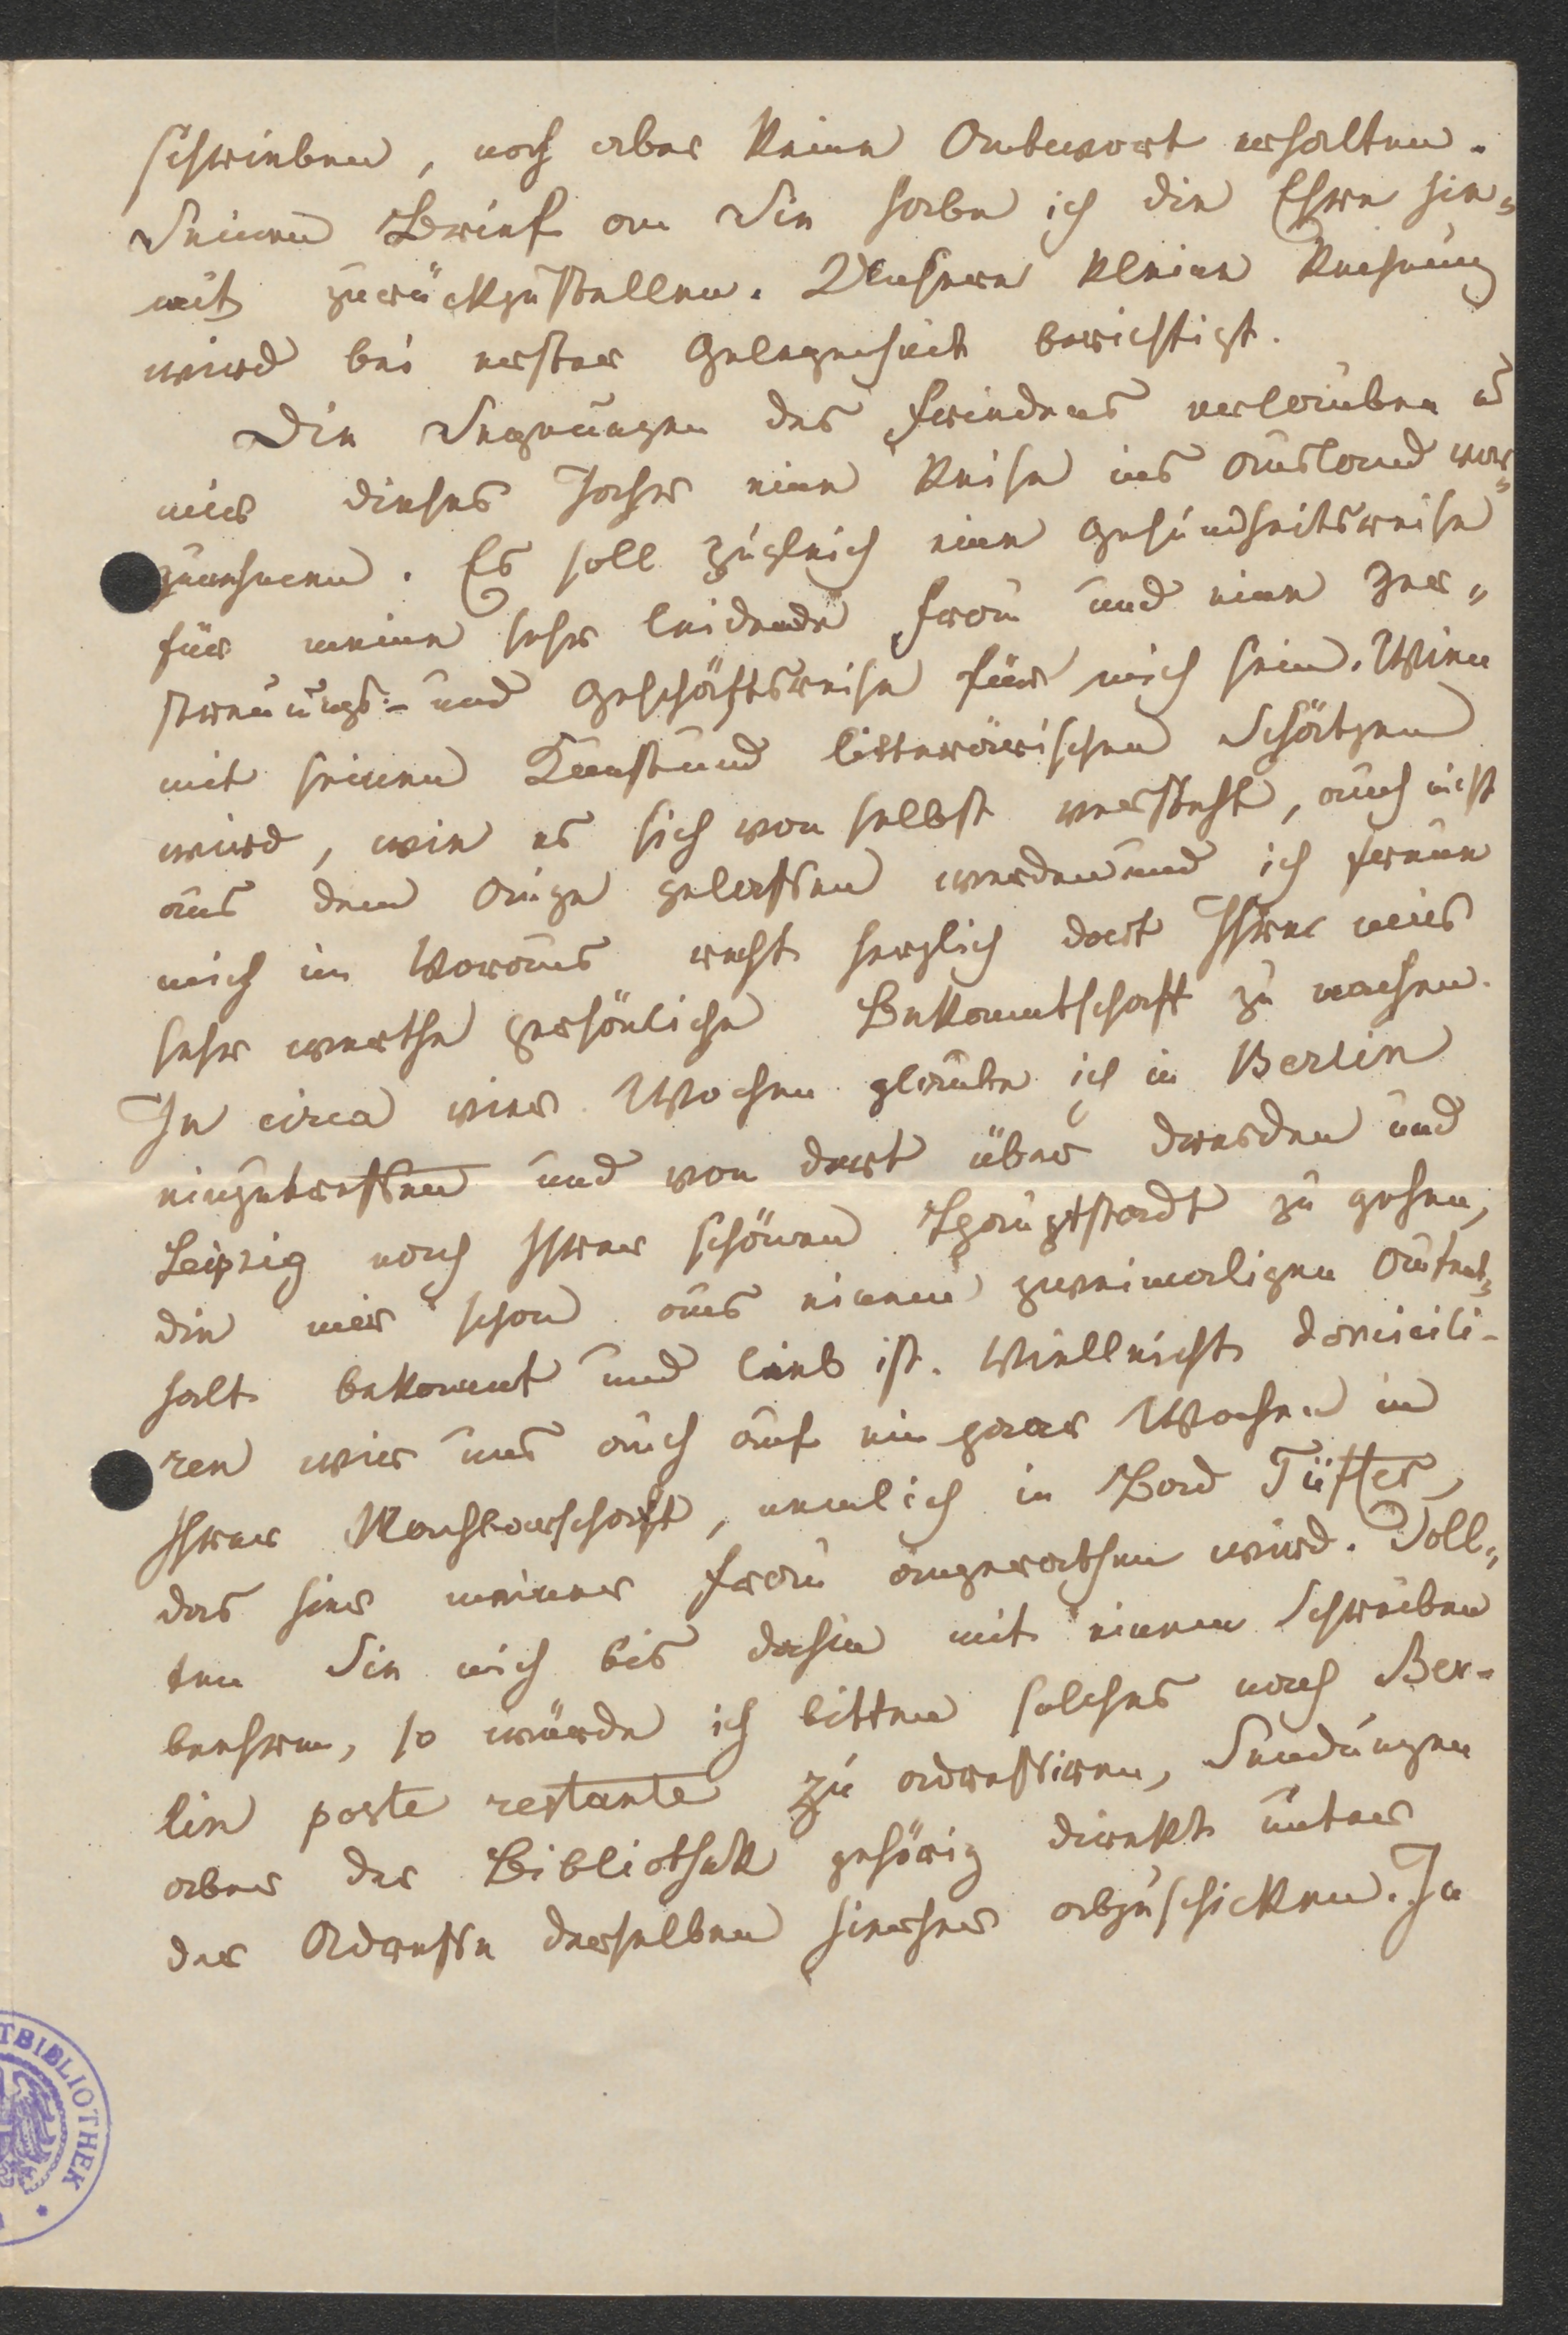 schrieben, noch aber keine Antwort erhalten.
Seinen Brief an Sie habe ich die Ehre hie„
mit zurückzustellen. Unsere kleine Rechnung
wird bei erster Gelegenheit berichtigt.
Die Segnungen des Friedens erlauben es
mir dieses Jahr eine Reise ins Ausland vor„
zunehmen. Es soll zugleich eine Gesundheitsreise
für meine sehr leidende Frau und eine Zer„
streuungs- und Geschäftsreise für mich sein. Wien
mit seinen Kunst und litterärischen Schätzen
wird, wie es sich von selbst versteht, auch nicht
aus dem Auge gelassen werden und ich freue
mich im Voraus recht herzlich dort Ihre mir
sehr werthe persönliche Bekanntschaft zu machen.
In circa vier Wochen glaube ich in Berlin
einzutreffen und von dort über Dresden und
Leipzig nach Ihrer schönen Hauptstadt zu gehen,
die mir schon aus einem zweimaligen Aufent„
halt bekannt und lieb ist. Vielleicht domicili-
ren wir uns auch auf ein paar Wochen in
Ihrer Nachbarschaft, nemlich in Bad Tüffer,
das hier meiner Frau angerathen wird. Soll„
ten Sie mich bis dahin mit einem Schreiben
beehren, so würde ich bitten solches nach Ber-
lin poste restante zu adressiren, Sendungen
aber der Bibliothek gehörig direkt unter
der Adresse derselben hierher abzuschicken. In
TBIBLIOTHEK